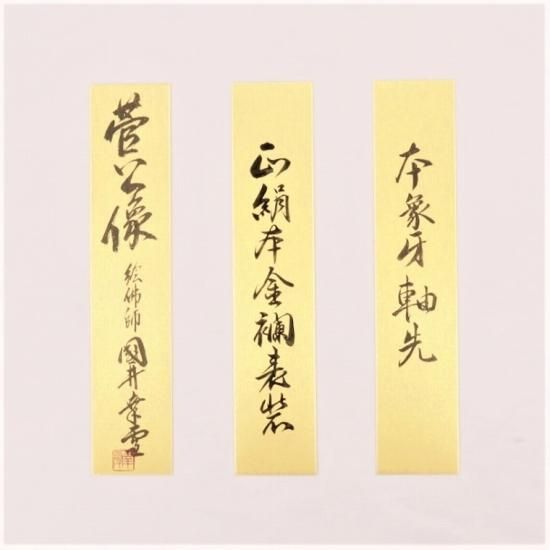 本象牙軸先
正絹本金襴表装
菅公像 絵佛師 國井幸雪